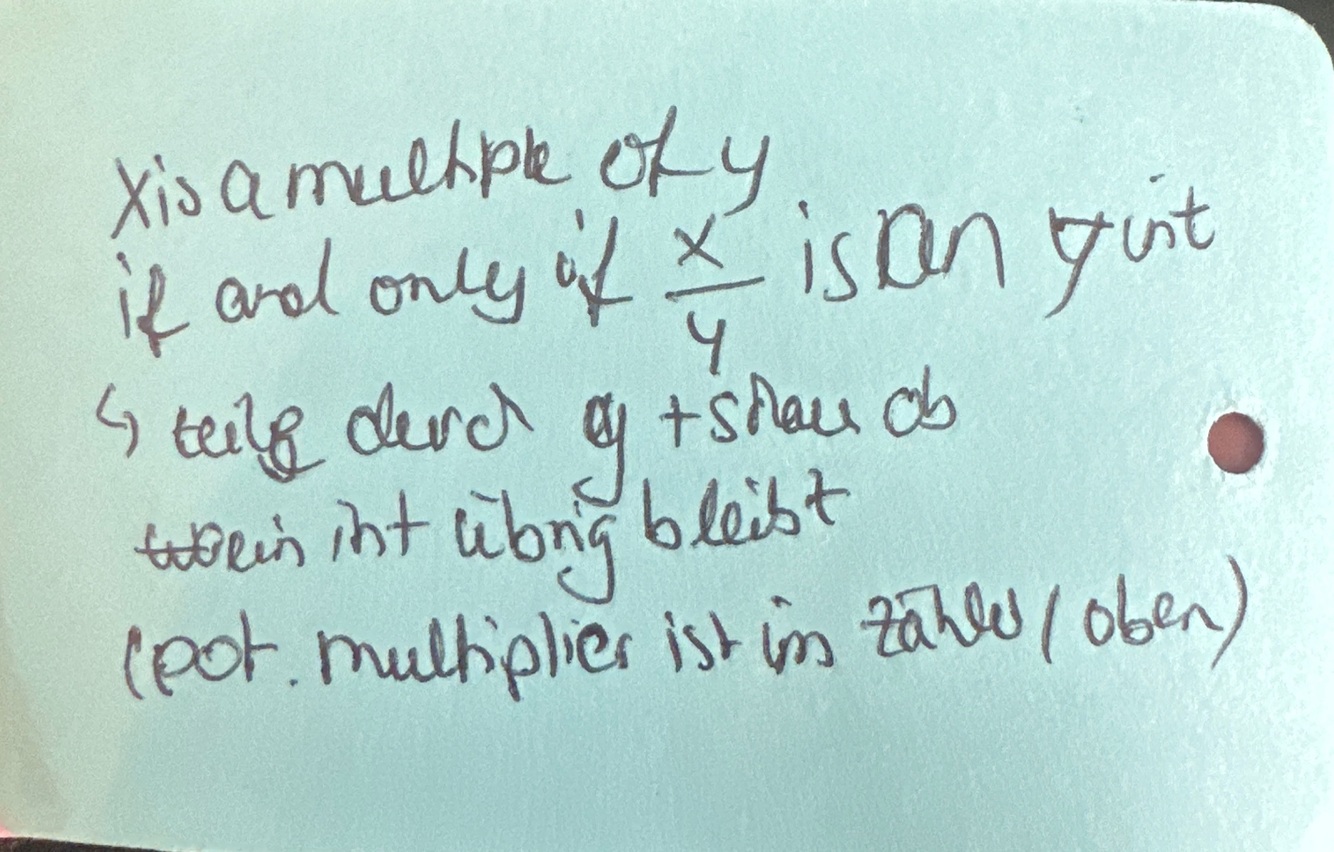 x is a multiple of y
if and only if x/y is an int
↳ teile durch y + shau ob
ein int übrig bleibt
(pot. multiplier ist im Zähler (oben)